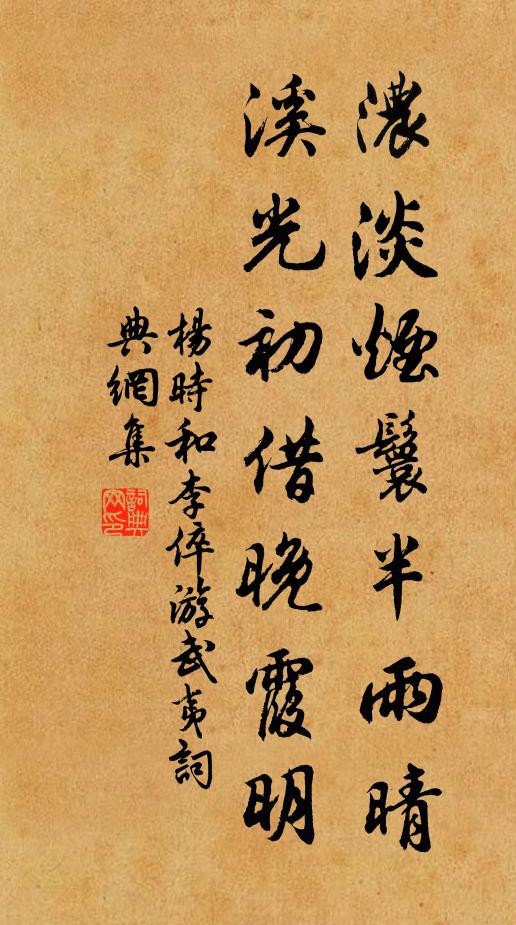 濃淡煙鬟半雨晴
溪光初借晚霞明
楊時和李倅游武夷詞
典網集
詞典網印